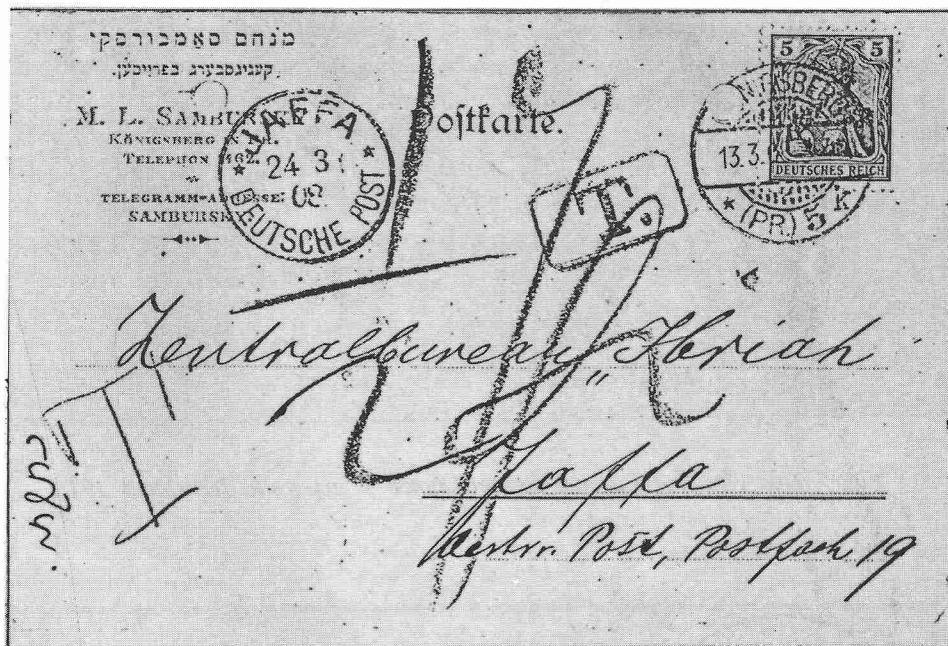 מנחם סאמבורסקי
קעניגסבערג בפרויסען.
M. L. SAMBURSKY
KÖNIGSBERG
TELEPHON 1462.
TELEGRAMM-ADRESSE:
SAMBURSKY
Postkarte.
JAFFA
24 3
08
DEUTSCHE POST
T.
5 5
DEUTSCHES REICH
13.3.
* (PR.) 5 K
Zentralbureau "Ibriah"
Jaffa
Oestrr. Post, Postfach 19